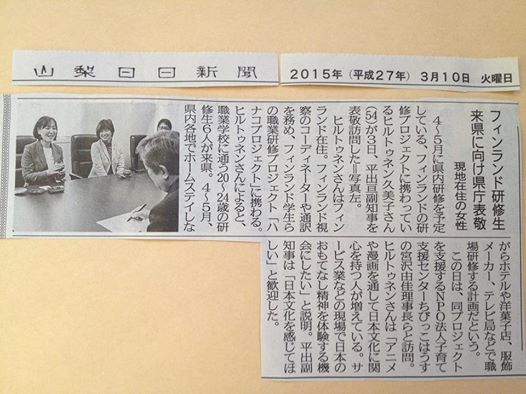 山梨日日新聞
2015年（平成27年）3月10日 火曜日
フィンランド研修生
来県に向け県庁表敬
現地在住の女性
４～５月に県内研修を予定
している、フィンランドの研
修プロジェクトに携わってい
るヒルトゥネン久美子さん
(54)が３日、平出亘副知事を
表敬訪問した＝写真左。
ヒルトゥネンさんはフィン
ランド在住。フィンランド視
察のコーディネーターや通訳
を務め、フィンランド学生ら
の職業研修プロジェクト「ハ
ナコプロジェクト」に携わる。
ヒルトゥネンさんによると、
職業学校に通う20～24歳の研
修生６人が来県。４～５月、
県内各地でホームステイしな
がらホテルや洋菓子店、服飾
メーカー、テレビ局などで職
場研修する計画だという。
この日は、同プロジェクト
を支援するＮＰＯ法人子育て
支援センターちびっこはうす
の宮沢由佳理事長らと訪問。
ヒルトゥネンさんは「アニメ
や漫画を通して日本文化に関
心を持つ人が増えている。サ
ービス業などの現場で日本の
おもてなし精神を体験する機
会にしたい」と説明。平出副
知事は「日本文化を感じてほ
しい」と歓迎した。